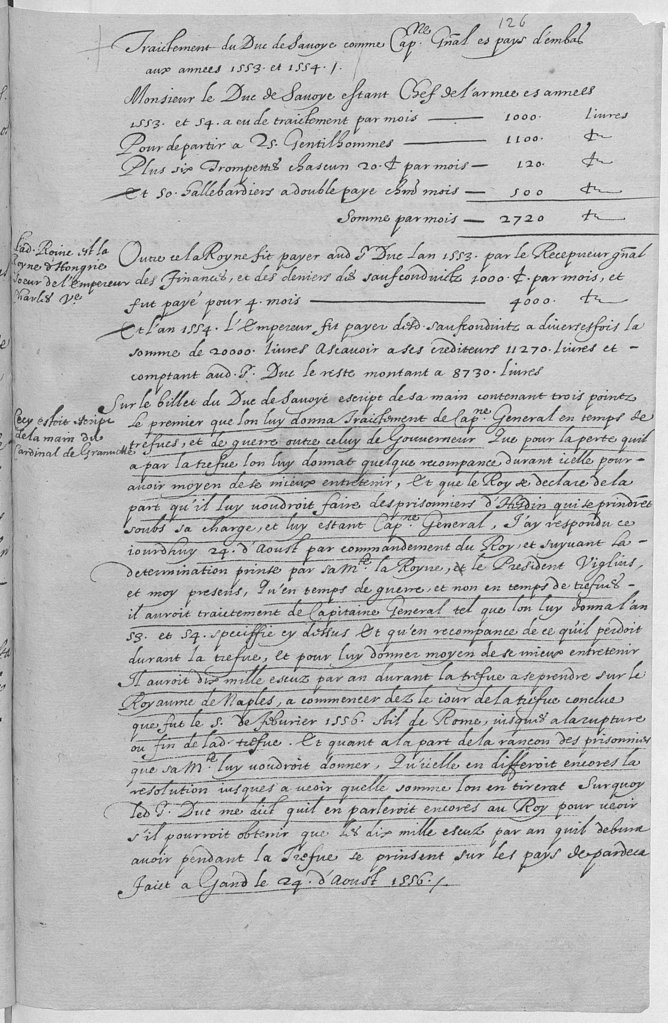 126
Traictement du Duc de Savoye comme Cap.ne Gñal es pays d'embas
aux annees 1553. et 1554. /.
Monsieur le Duc de Savoye estant Chef de l'armee es annees
1553. et 54. a eu de traictement par mois — 1000. livres
Pour departir a 25. Gentilhommes — 1100. ₶
Plus six Trompettes chascun 20. ₶ par mois — 120. ₶
Et 50. hallebardiers a double paye chũn mois — 500 ₶
Somme par mois — 2720 ₶
Lad. Roine est la
Royne d'Hongrie
soeur de l'Empereur
Charles Ve.
Oultre ce la Royne fit payer aud. Sr. Duc lan 1553. par le Recepveur gñal
des Finances, et des deniers des saufconduitz 1000. ₶. par mois, et
fut payé pour 4. mois — 4000. ₶
Et l'an 1554. L'Empereur fit payer desd. saufconduitz a diverses fois la
somme de 20000. livres Ascavoir a ses crediteurs 11270. livres et -
comptant aud. Sr. Duc le reste montant a 8730. livres
Cecy estoit escript
de la main du
Cardinal de Granvelle
Sur le billet du Duc de Savoye escript de sa main contenant trois pointz
le premier que lon luy donna Traictement de Cap.ne General en temps de
trefues, et de guerre outre celuy de Gouverneur Que pour la perte quil
a par la trefue lon luy donnat quelque recompance durant icelle pour
avoir moyen de se mieux entretenir, Et que le Roy se declare de la
part qu'il luy voudroit faire des prisonniers d'Hesdin qui se prindrent
soubs sa charge, et luy estant Cap.ne General, J'ay respondu ce
iourdhuy 24. d'Aoust par commandement du Roy, et suyvant la
determination prinse par sa M.te la Royne, et le President Viglius,
et moy presens, Qu'en temps de guerre, et non en temps de trefues
il auroit traictement de Capitaine General tel que lon luy donna l'an
53. et 54. speciffie cy dessus Et qu'en recompance de ce quil perdoit
durant la trefue, et pour luy donner moyen de se mieux entretenir
Il auroit dix mille escuz par an durant la trefue a se prendre sur le
Royaume de Naples, a commencer dez le iour de la trefue conclue
que fut le 5. de febvrier 1556. stil de Rome, iusques a la rupture
ou fin de lad. trefue. Et quant a la part de la rancon des prisonniers
que sa M.te luy voudroit donner, Qu'icelle en differoit encores la
resolution iusques a veoir quelle somme lon en tirerat Surquoy
led. Sr. Duc me dict quil en parleroit encores au Roy pour veoir
s'il pourroit obtenir que les dix mille escuz par an quil debvra
avoir pendant la Trefue se prinsent sur les pays de pardeca
Faict a Gand le 24. d'Aoust 1556. /.